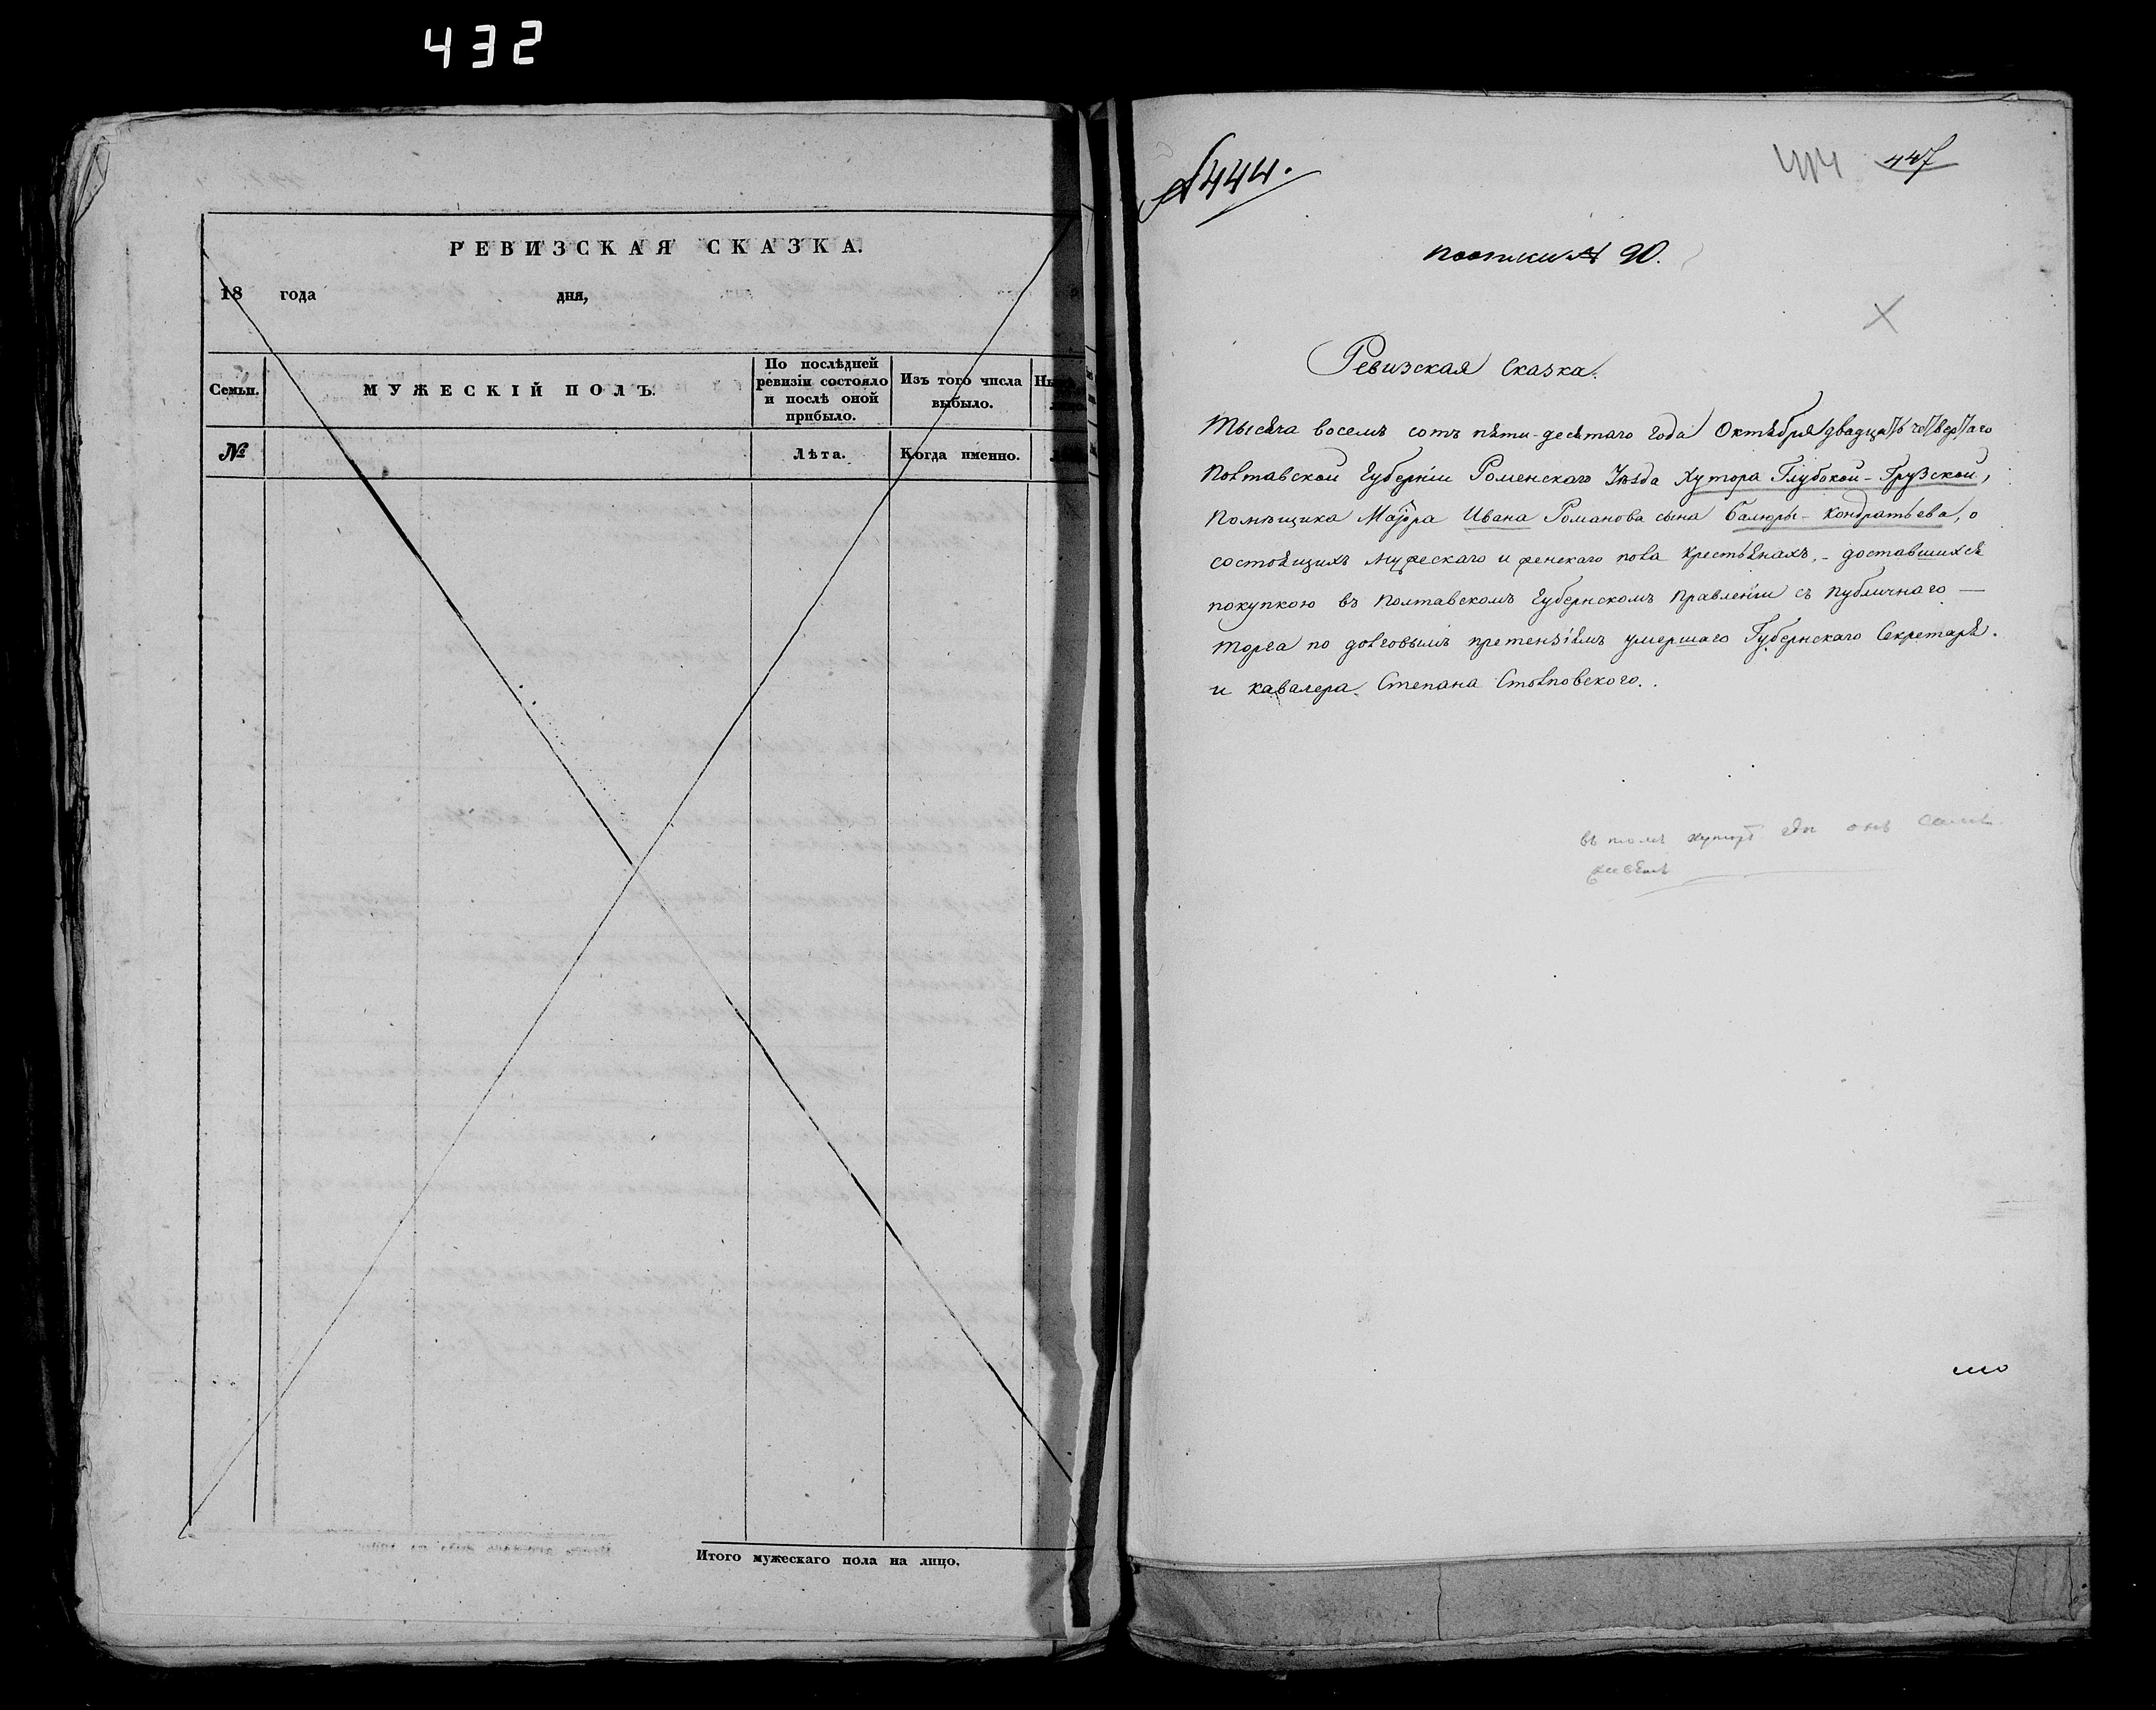 432
РЕВИЗСКАЯ СКАЗКА.
18 года дня,
Семьи.
МУЖЕСКІЙ ПОЛЪ.
По послѣдней ревизіи состояло и послѣ оной прибыло.
Изъ того числа выбыло.
№
Лѣта.
Когда именно.
Итого мужескаго пола на лицо.
№ 444.
447
№ 90.
Ревизская Сказка.
Тысяча восемъ сотъ пяти-десятаго года Октября двадцать четвертаго
Полтавской Губерніи Роменскаго Уѣзда Хутора Глубокой-Грузской,
Помѣщика Маіора Ивана Романова сына Балюры-Кондратьева, о
состоящихъ мужескаго и женскаго пола крестьянахъ, - доставшихся
покупкою въ Полтавскомъ Губернскомъ Правленіи съ публичнаго —
торга по долговымъ претензіямъ умершаго Губернскаго Секретаря.
и кавалера Степана Столповского.
въ томъ хуторѣ гдѣ онъ самъ
живетъ